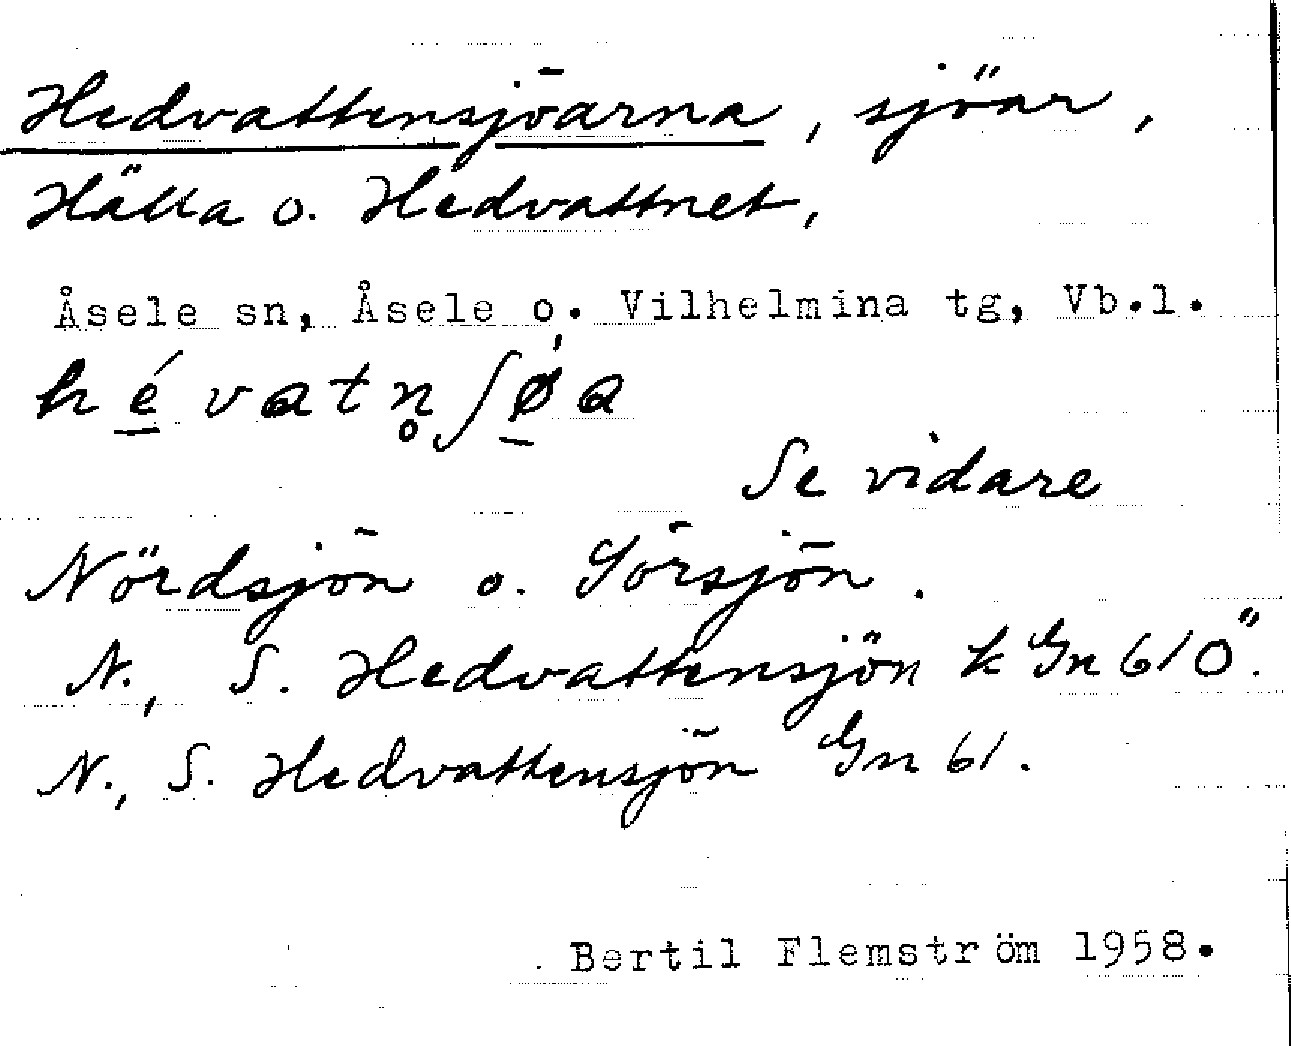 Hedvattensjöarna, sjöar,
Hälla o. Hedvattnet,
Åsele sn, Åsele o. Vilhelmina tg, Vb.l.
hé̱vatn̥ʃø̱̀a
Se vidare
Nördsjön o. Sörsjön.
N., S. Hedvattensjön k Gn 61 Ö.
N., S. Hedvattensjön Gn 61.
Bertil Flemström 1958.